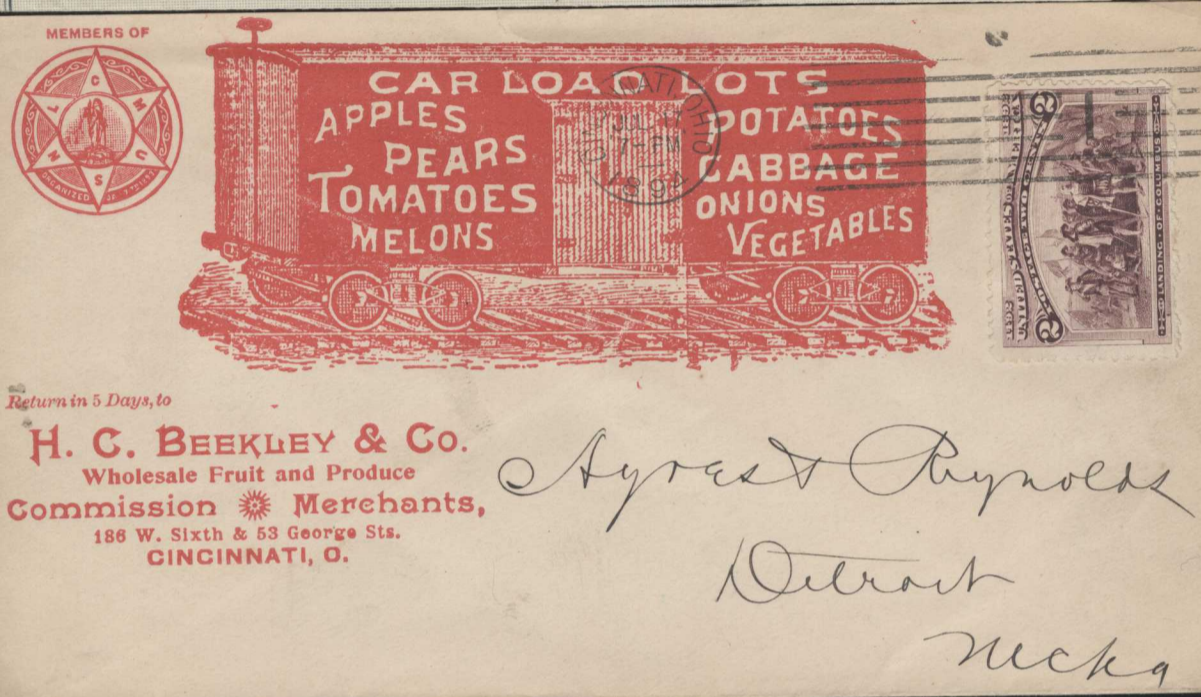 MEMBERS OF
CAR LOAD LOTS
APPLES
PEARS
TOMATOES
MELONS
POTATOES
CABBAGE
ONIONS
VEGETABLES
CINCINNATI, OHIO
JUL 17
7-PM
189
2
LANDING OF COLUMBUS
Return in 5 Days, to
H. C. BEEKLEY & Co.
Wholesale Fruit and Produce
Commission Merchants,
186 W. Sixth & 53 George Sts.
CINCINNATI, O.
Ayres & Reynolds
Detroit